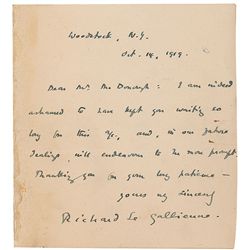 Woodstock, N.Y.
Oct. 14, 1919.
Dear Mr. McDonough: I am indeed
ashamed to have kept you waiting so
long for this &c, and, in our future
dealings, will endeavour to be more prompt.
Thanking you for your long patience –
yours very sincerely
Richard Le Gallienne.